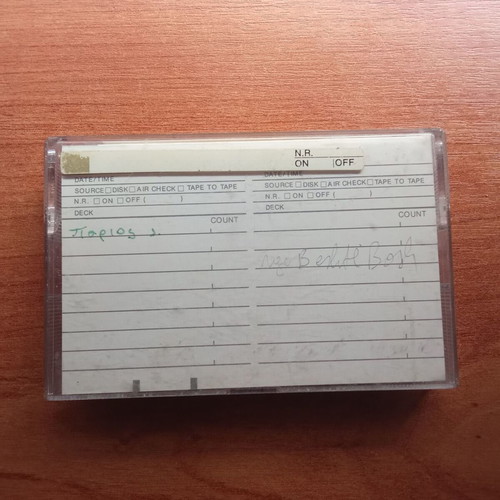 N.R.
ON |OFF
DATE/TIME
SOURCE □ DISK □ AIR CHECK □ TAPE TO TAPE
N.R. □ ON □ OFF ( )
DECK
COUNT
Παριος
DATE/TIME
SOURCE □ DISK □ AIR CHECK □ TAPE TO TAPE
N.R. □ ON □ OFF ( )
DECK
COUNT